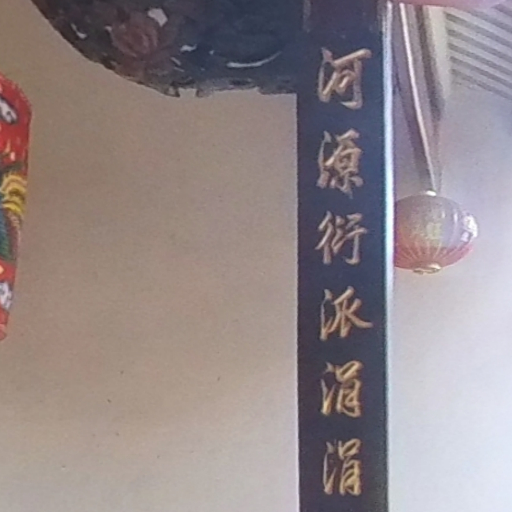 河源衍派涓涓